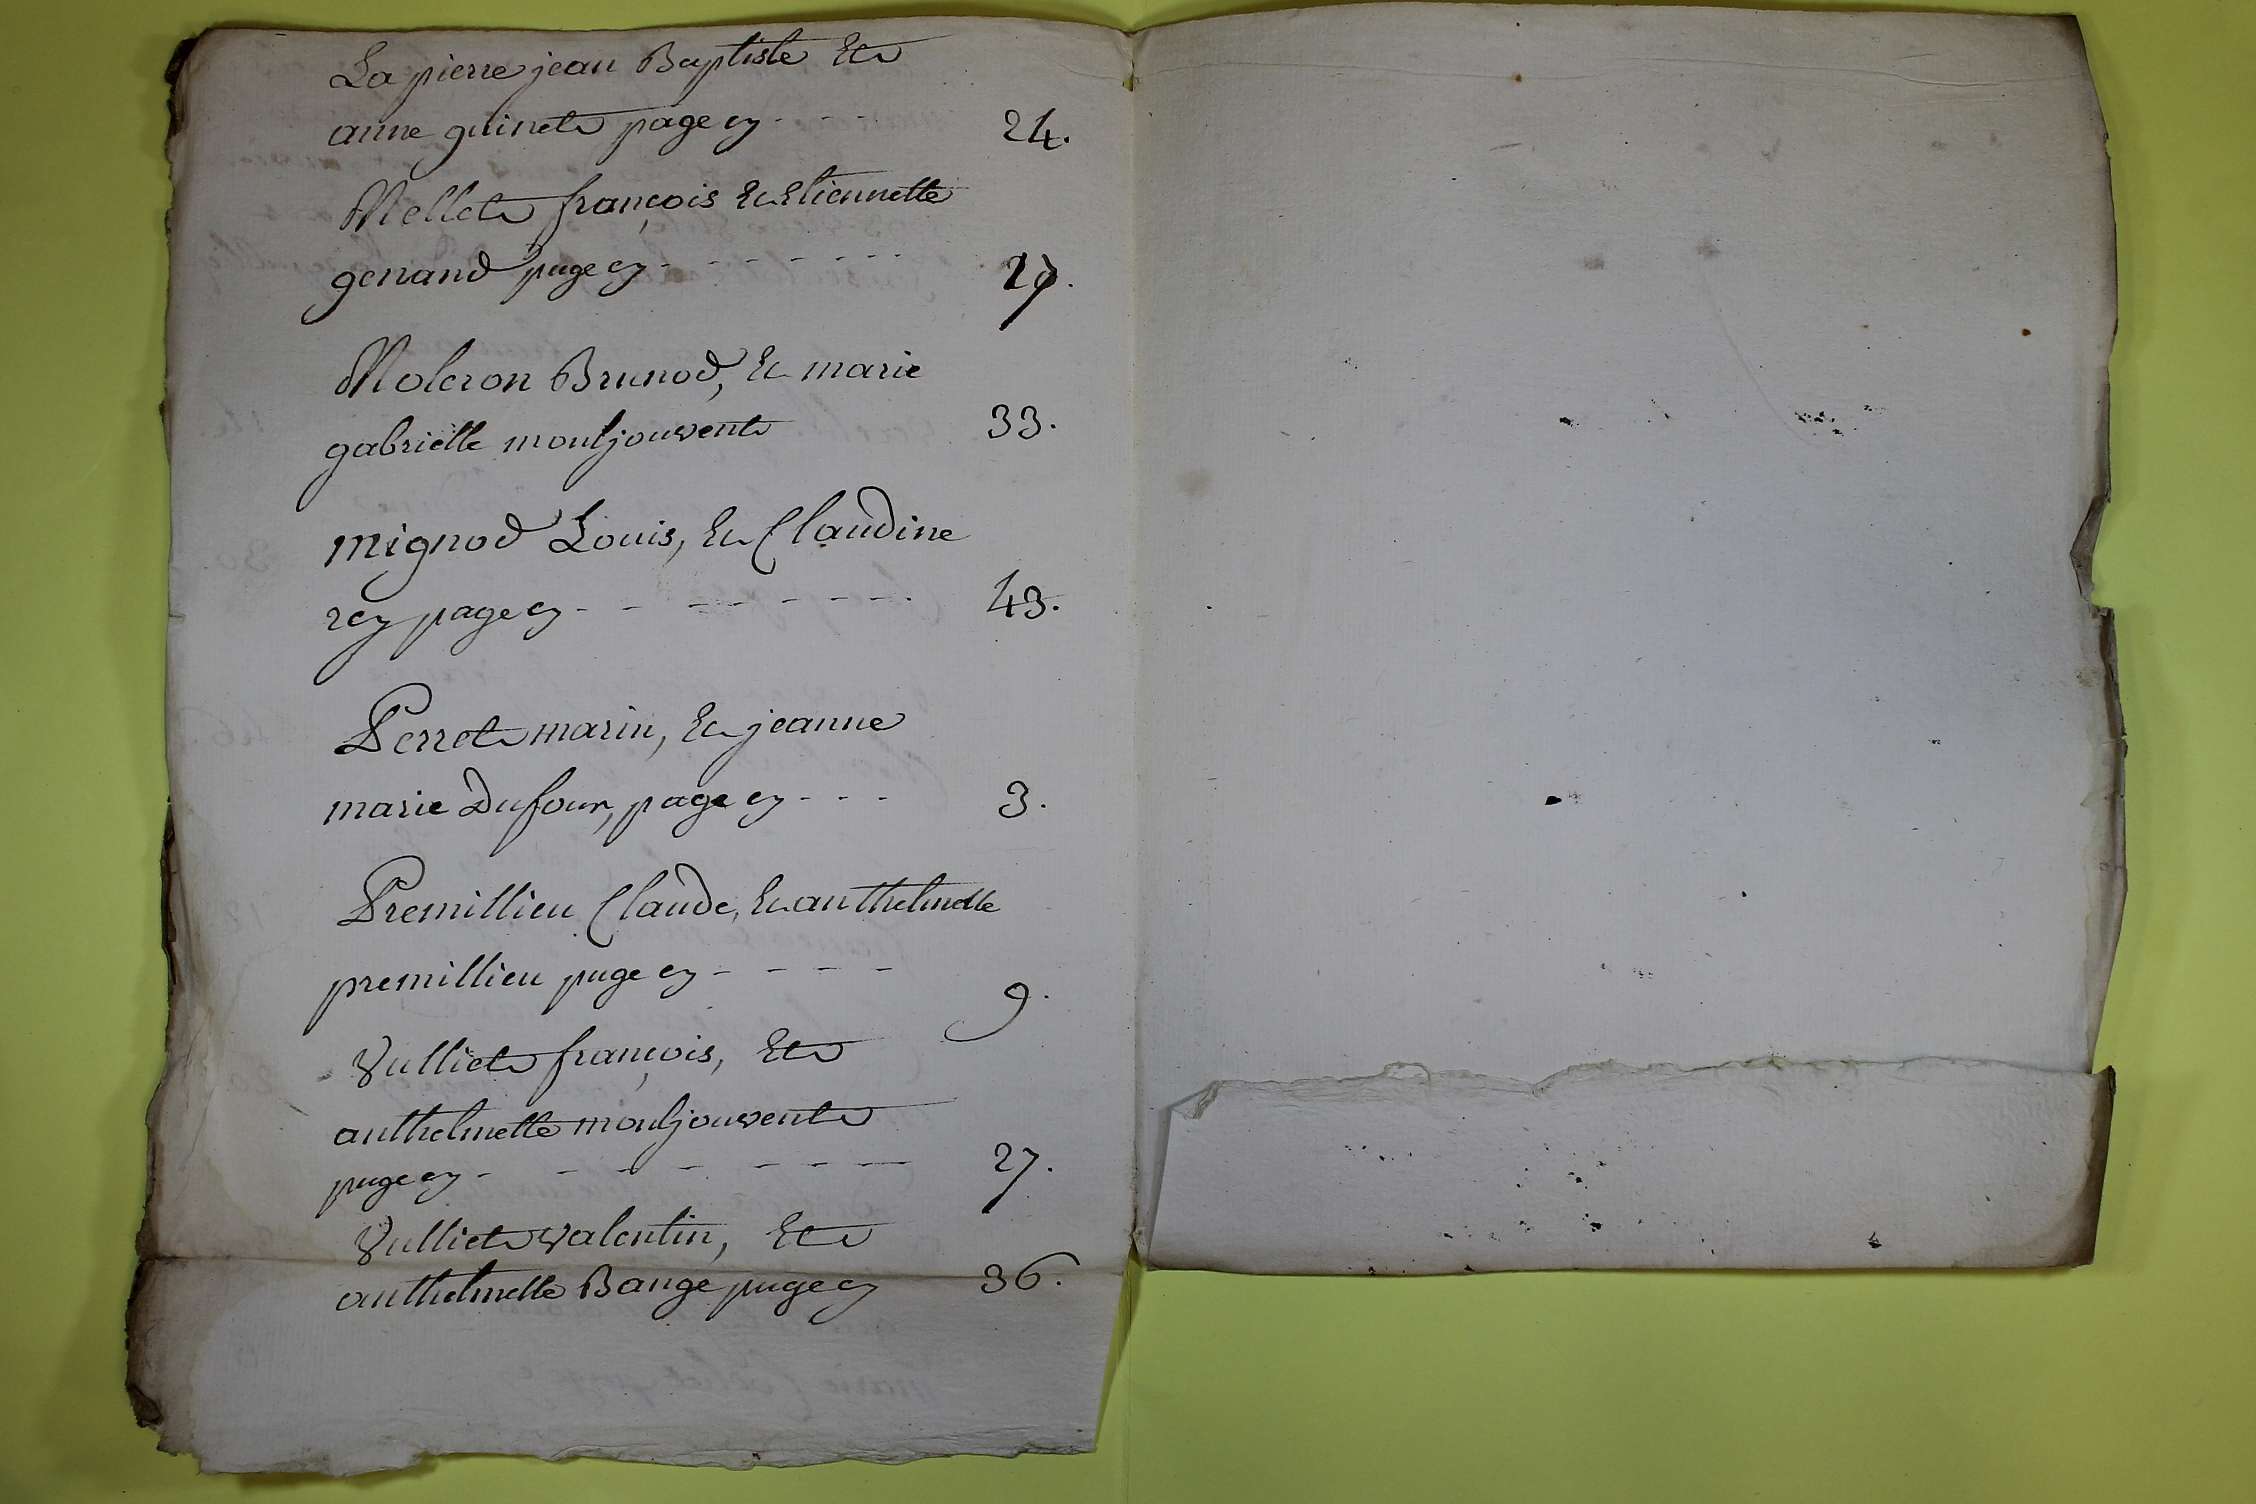 La pierre jean Baptiste Et
anne guinet page cy - - - 24.
Mellet françois Et Etiennette
genand page cy - - - - - - -
Moleron Brunod, Et marie
gabrielle montjouvent 33.
mignod Louis, Et Claudine
rey page cy - - - - - - - - 43.
Perret marin, Et jeanne
marie Dufour, page cy - - - 3.
Premillieu Claude, Et anthelmette
premillieu page cy - - - - 9.
Vulliet françois, Et
anthelmette montjouvent
page cy - - - - - - - 27.
Vulliet valentin, Et
anthelmette Bange page cy 36.